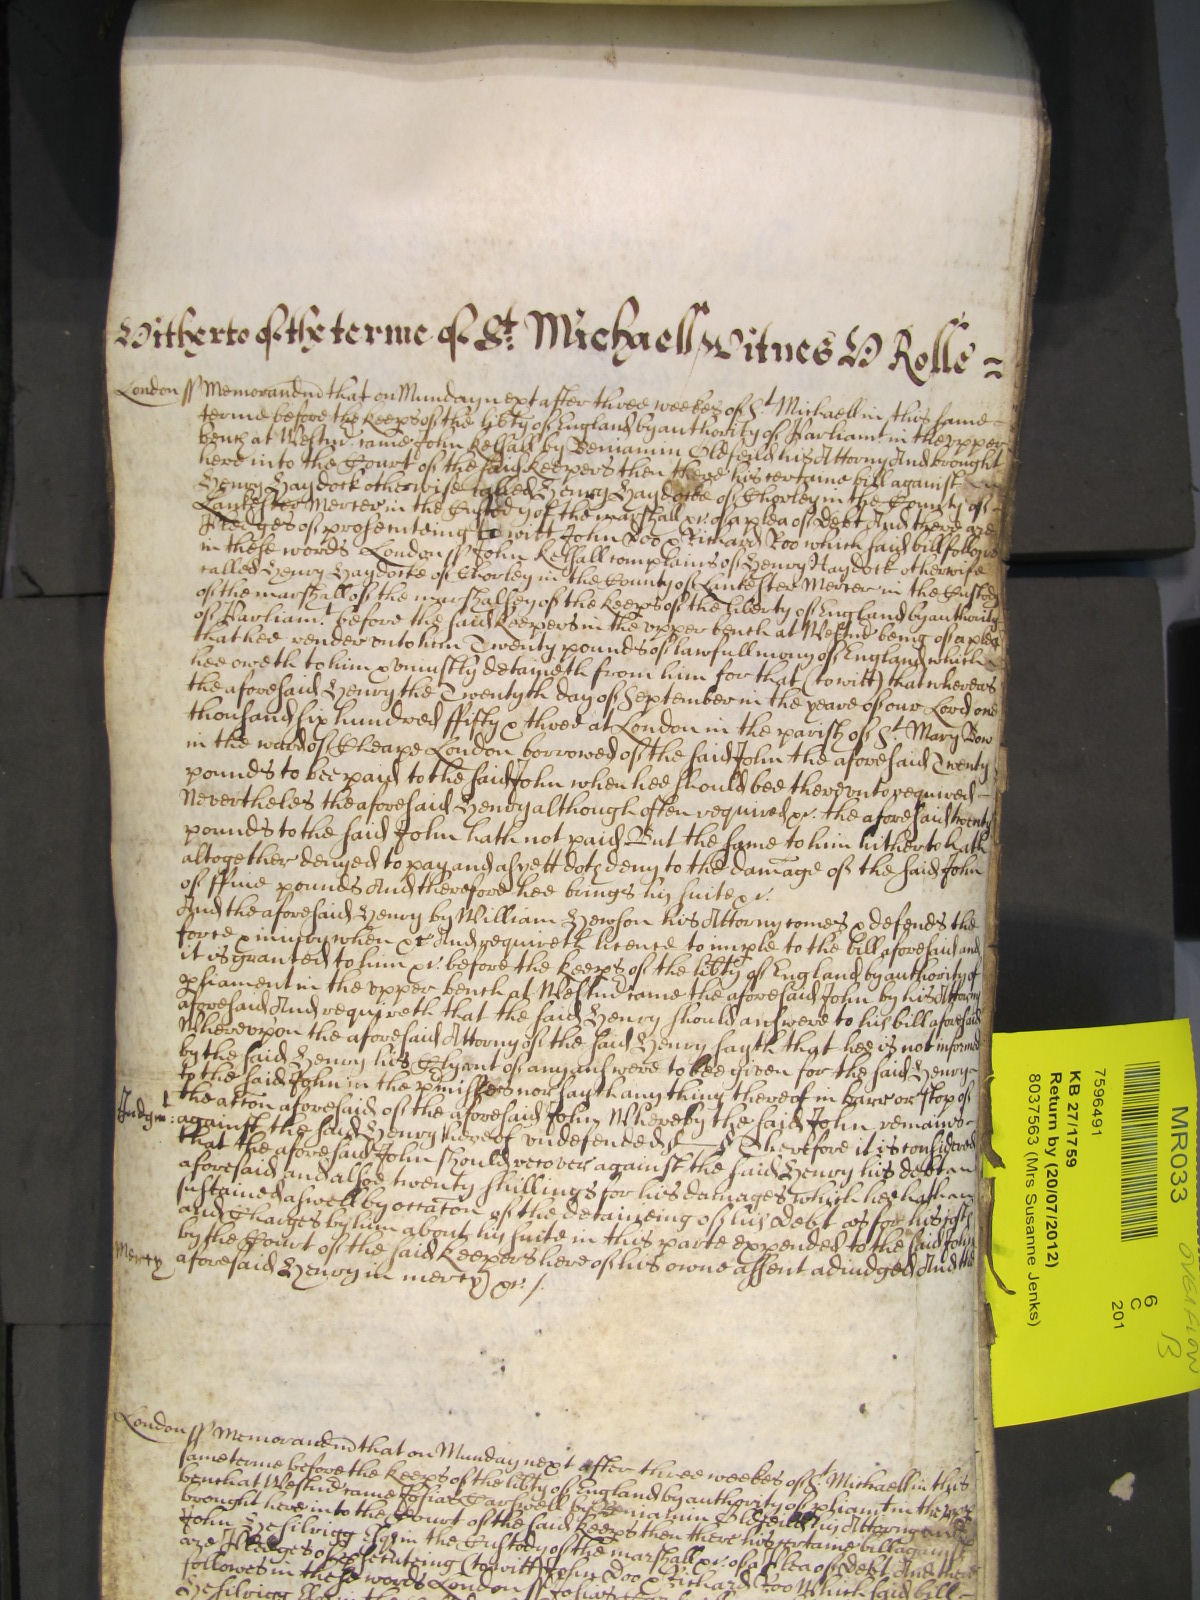 Hitherto of the terme of St: Michaell Witnes H Rolle =
London ss Memorandm that on Munday next after three weekes of St Michaell in this same
terme before the keeps of the libty of England by authority of Parliamt in the vpper
bench at Westmr came John Kelsall by Beniamin Oldfeild his Attorny And brought
here into the Court of the said keepers then there his certaine bill against
Henry Haydock otherwise called Henry Haydocke of Chorley in the County of
Lankester Mercer in the Custody of the marshall &c. of a plea of Debt And there are
Pledges of prosecuteing to witt John Doo & Richard Roo which said bill followes
in these words London ss John Kelsall complains of Henry Haydock otherwise
called Henry Haydocke of Chorley in the County of Lankester Mercer in the Custody
of the marshall of the marshalsey of the keeps of the liberty of England by authority
of Parliamt. before the said keepers in the vpper bench at Westmr being of a plea
that hee render vnto him Twenty pounds of lawfull mony of England which
hee oweth to him & vniustly detaineth from him for that (to witt) that whereas
the aforesaid Henry the Twentyth day of September in the yeare of our Lord one
thousand six hundred ffifty & three at London in the parish of St. Mary Bow
in the ward of Cheape London borrowed of the said John the aforesaid Twenty
pounds to bee paid to the said John when hee should bee therevnto required
Nevertheles the aforesaid Henry although often required &c. the aforesaid twenty
pounds to the said John hath not paid But the same to him hitherto hath
altogether denyed to pay and as yett doth deny to the damage of the said John
of ffiue pounds And therefore hee brings his suite &c.
And the aforesaid Henry by William Hewson his Attorny comes & defends the
force & iniury when &c And requireth licence to imple to the bill aforesaid and
it is granted to him &c. before the keeps of the libty of England by authority of
pliament in the vpper bench at Westmr came the aforesaid John by his Attorny
aforesaid And requireth that the said Henry should answere to his bill aforesaid
Wherevpon the aforesaid Attorny of the said Henry sayth that hee is not informed
by the said Henry his Clyant of any answere to bee given for the said Henry
to the said John in the pmisses nor sayth any thing thereof in barr or stop of
the accon aforesaid of the aforesaid John Whereby the said John remains
Judgmt: against the said Henry hereof vndefended &c Therefore it is considered
that the aforesaid John should recover against the said Henry his debt
aforesaid and alsoe twenty shillings for his damages which hee hath
sustained aswell by occacon of the detaineing of his debt as for his costs
and Charges by him about his suite in this parte expended to the said John
by the Court of the said keepers here of his owne assent adiudged And the
Mercy aforesaid Henry in mercy &c. /.
London ss Memorandm that on Munday next after three weekes of St Michaell in this
same terme before the keeps of the libty of England by authority of pliamt in the vpper
bench at Westmr came Josias by Beniamin Oldfeild his Attorny and
brought here into the Court of the said keeps then there his certaine bill against
John Hesilrigg Esqr in the Custody of the marshall &c. of a plea of Debt And there
are Pledges of psecuteing (to witt) John Doo & Richard Roo Which said bill
followes in these words London ss Josias
Hesilrigg
MR033
7596491
KB 27/1759
Return by (20/07/2012)
8037563 (Mrs Susanne Jenks)
6
C
201
overflow
B